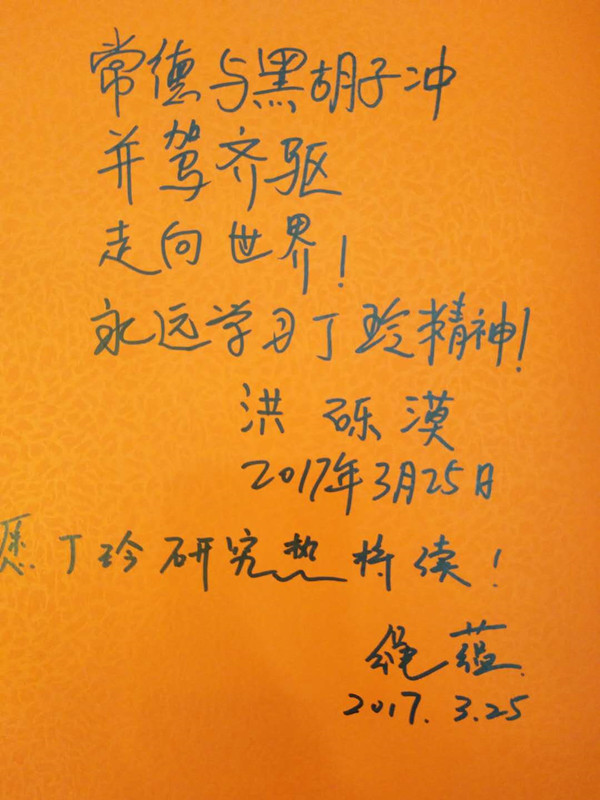 常德与黑胡子冲
并驾齐驱
走向世界！
永远学习丁玲精神！
洪砾漠
2017年3月25日
愿丁玲研究热持续！
绳蕴
2017.3.25